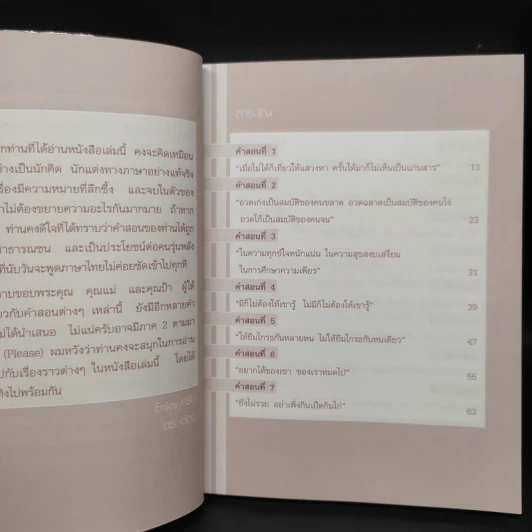 กท่านที่ได้อ่านหนังสือเล่มนี้ คงจะคิดเหมือน
างเป็นนักคิด นักแต่งทางภาษาอย่างแท้จริง
รื่องมีความหมายที่ลึกซึ้ง และจบในตัวของ
าไม่ต้องขยายความอะไรกันมากมาย ถ้าหาก
ท่านคงดีใจที่ได้ทราบว่าคำสอนของท่านได้ถูก
าธารณชน และเป็นประโยชน์ต่อคนรุ่นหลัง
ที่นับวันจะพูดภาษาไทยไม่ค่อยชัดเข้าไปทุกที
าบขอบพระคุณ คุณแม่ และคุณป้า ผู้ให้
ยวกับคำสอนต่างๆ เหล่านี้ ยังมีอีกหลายคำ
ไม่ได้นำเสนอ ไม่แน่ครับอาจมีภาค 2 ตามมา
(Please) ผมหวังว่าท่านคงจะสนุกในการอ่าน
ปกับเรื่องราวต่างๆ ในหนังสือเล่มนี้ โดยได้
ถึงไปพร้อมกัน
Enjoy ครับ
สารบัญ
คำสอนที่ 1
"เมื่อไม่ได้ก็เที่ยวให้แสวงหา ครั้นได้มาก็ไม่เห็นเป็นแก่นสาร" 13
คำสอนที่ 2
"อวดเก่งเป็นสมบัติของคนขลาด อวดฉลาดเป็นสมบัติของคนโง่
อวดโก้เป็นสมบัติของคนจน" 23
คำสอนที่ 3
"ในความทุกข์ใจหนักแน่น ในความสุขสงบเสงี่ยม
ในการศึกษาความเพียร" 31
คำสอนที่ 4
"มีก็ไม่ต้องให้เขารู้ ไม่มีก็ไม่ต้องให้เขารู้" 39
คำสอนที่ 5
"ให้ยืมโกรธกันหลายหน ไม่ให้ยืมโกรธกันหนเดียว" 47
คำสอนที่ 6
"อยากได้ของเขา ของเราหมดไป" 55
คำสอนที่ 7
"ยังไม่รวย อย่าเพิ่งกินเป็ดกินไก่" 63